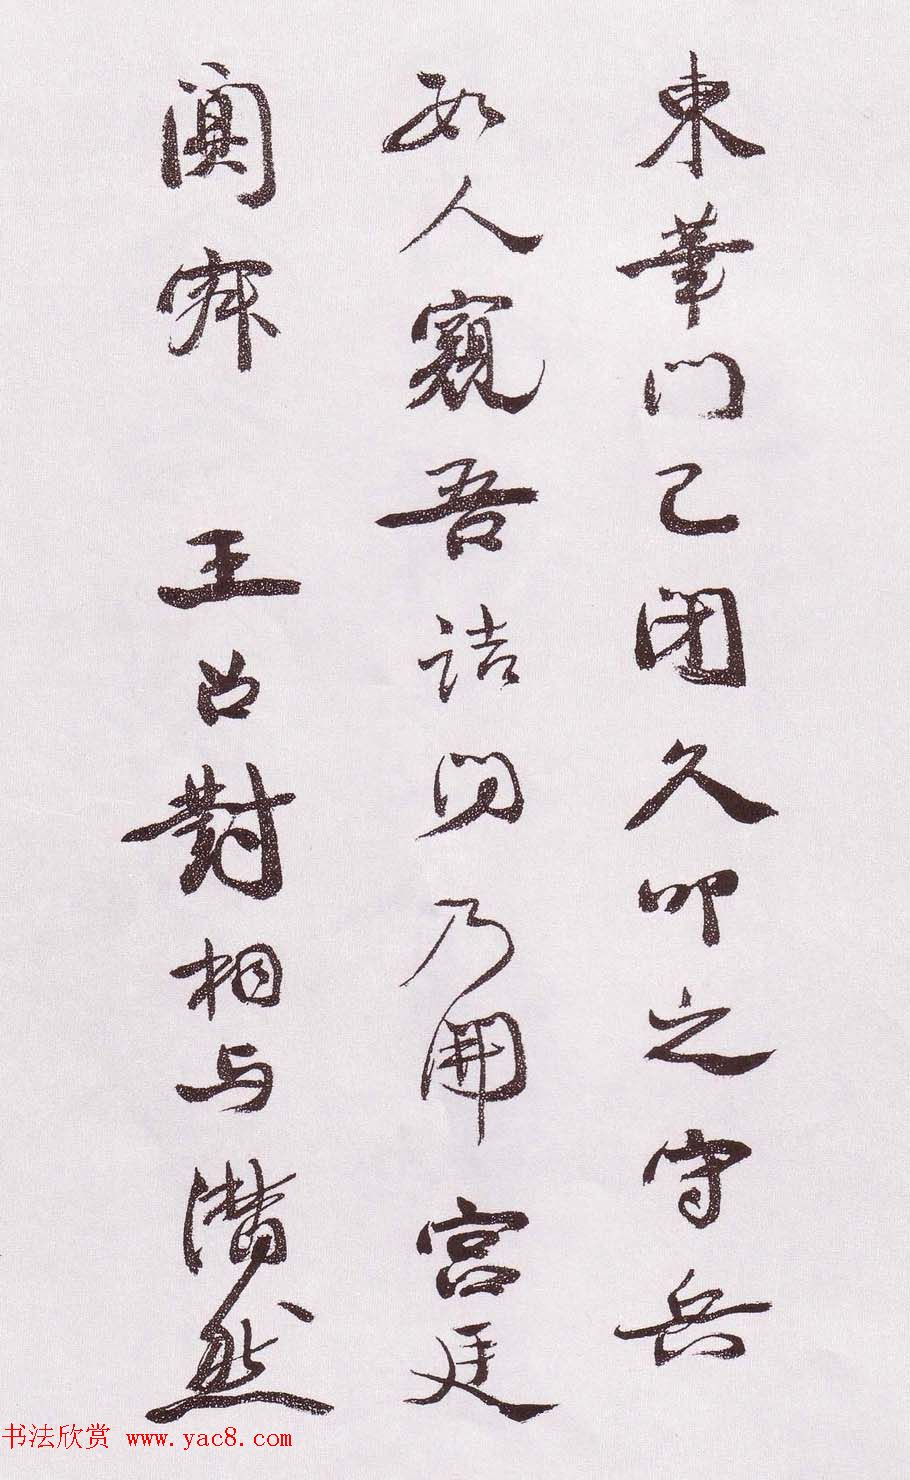 東華門已閉久叩之守兵
数人窺吾詰問乃開宮廷
闃寂 王召對相与潸然
书法欣赏 www.yac8.com